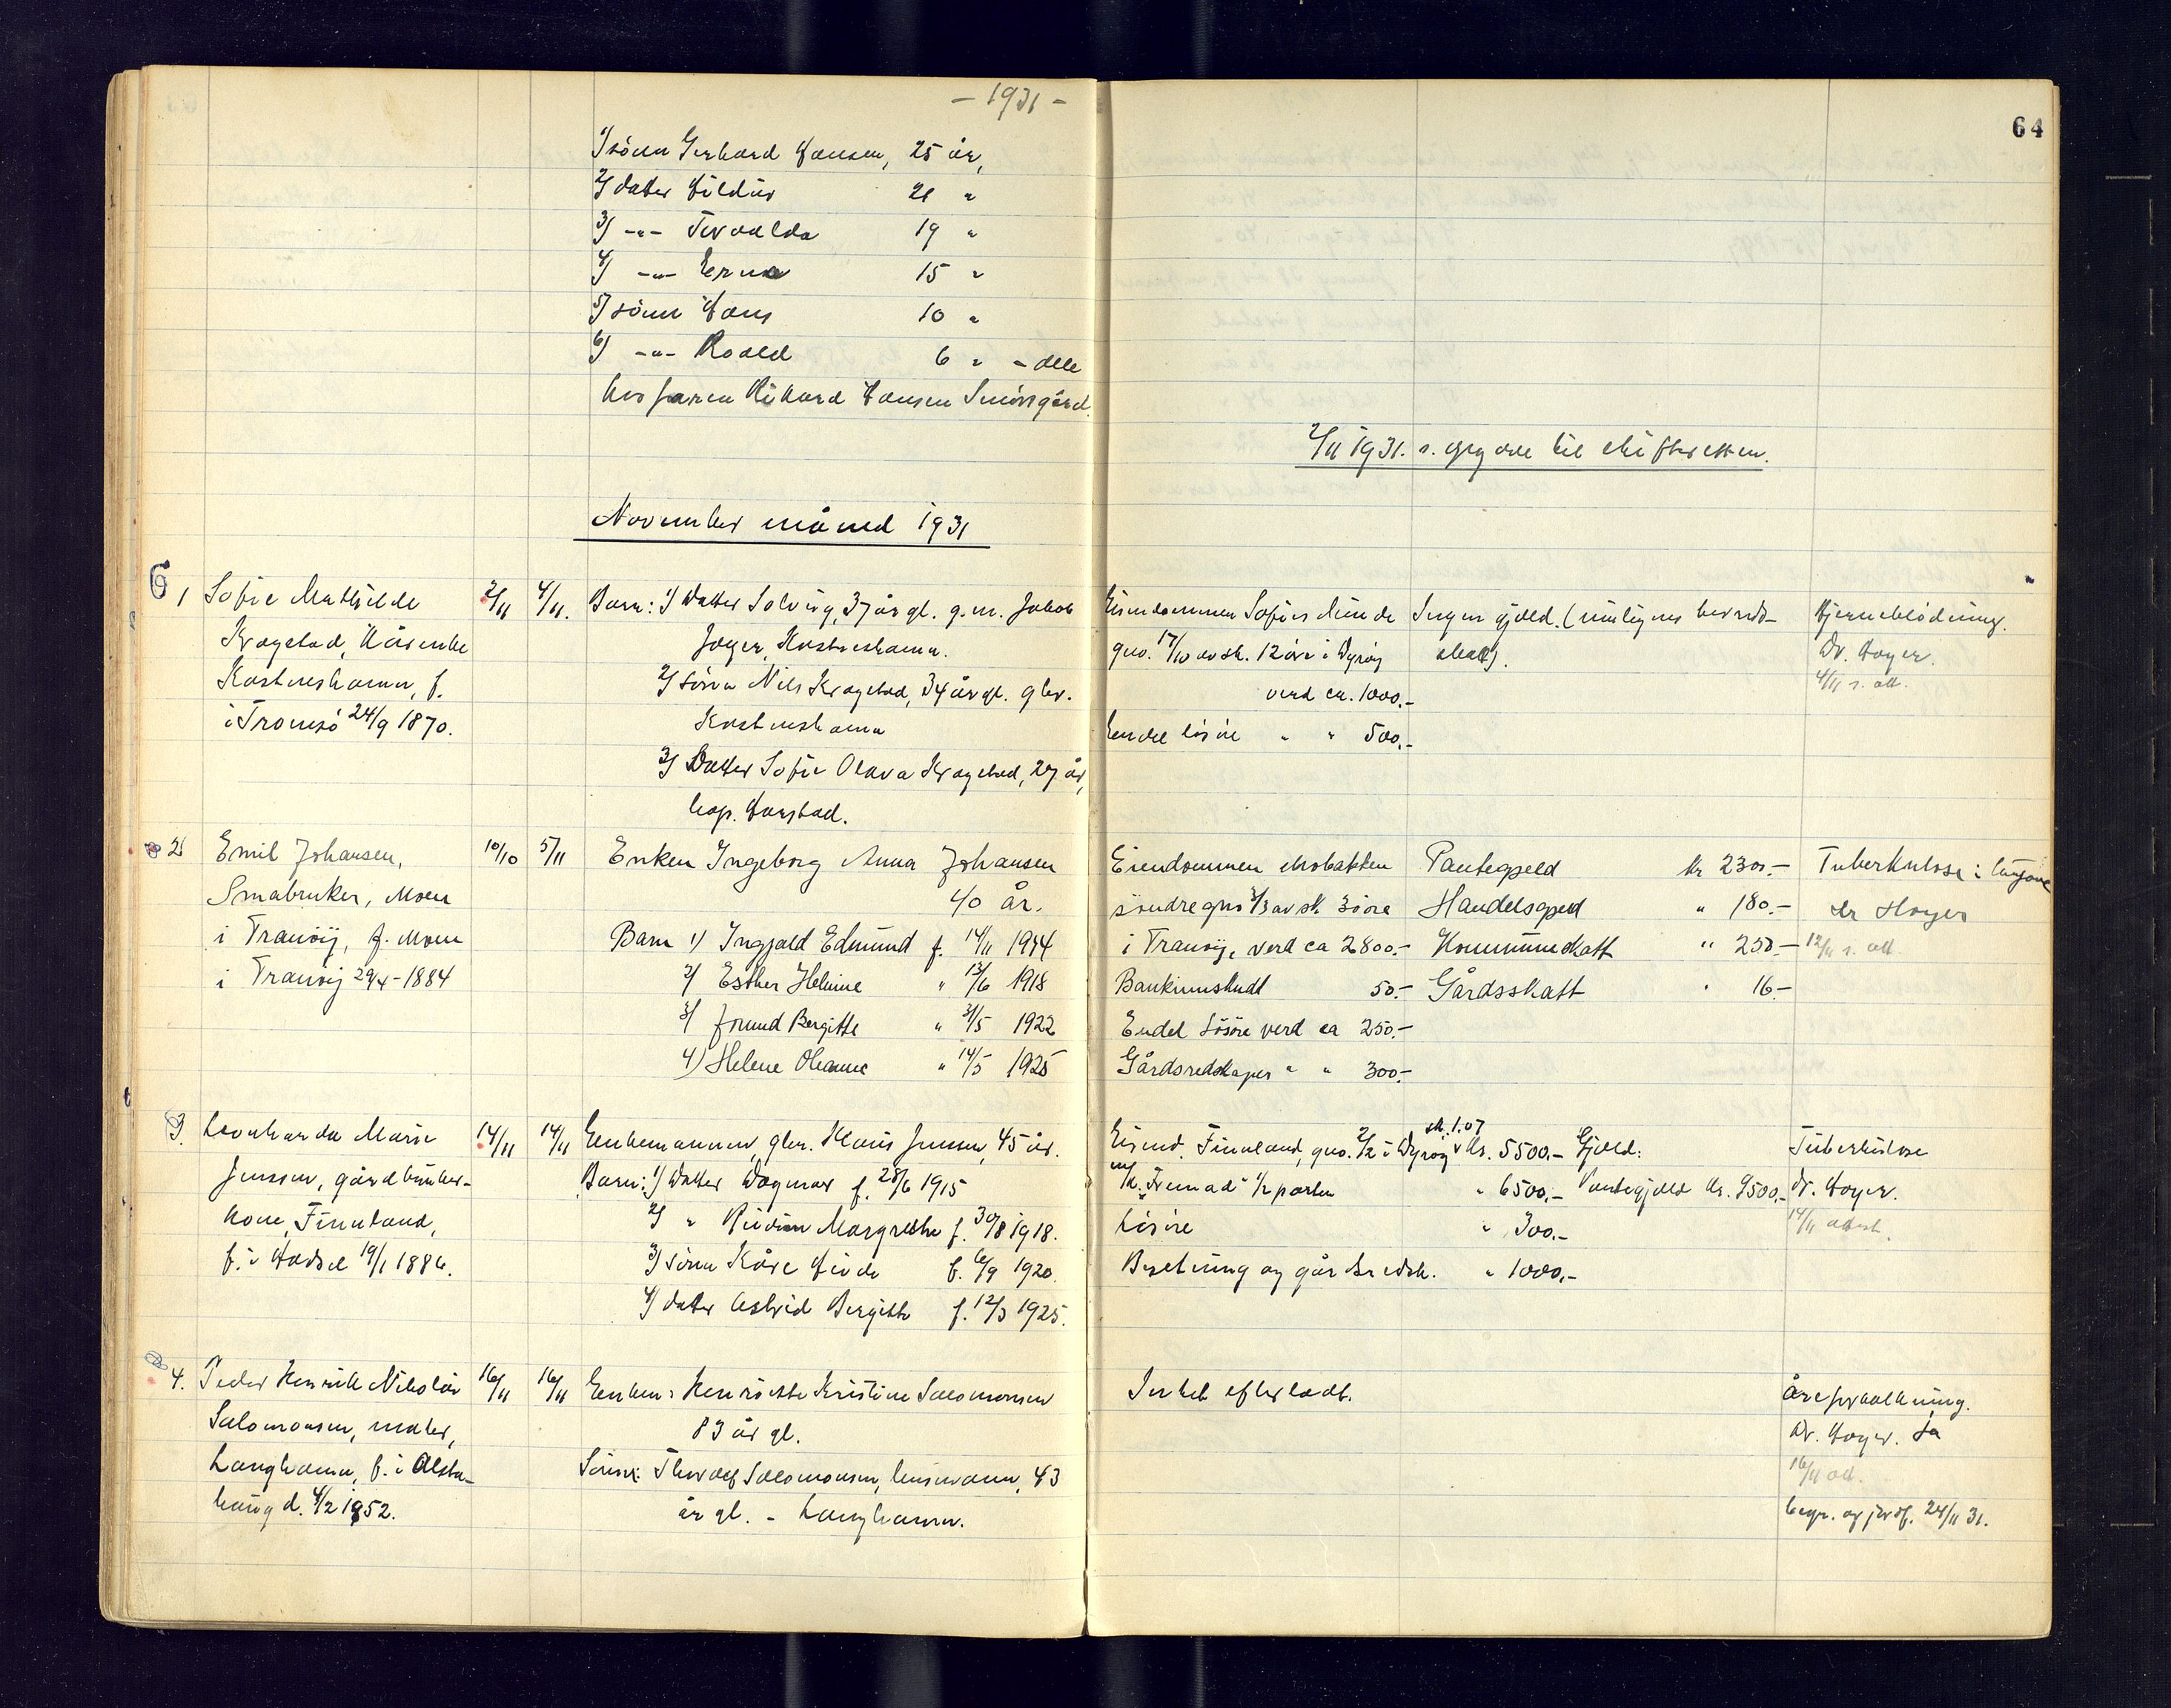 - 1931 -
64
1) sönn Gerhard Hansen, 25 år,
2) datter Hildur 21 "
3) -"- Torvalda 19 "
4) -"- Erna 15 "
5) sönn Hans 10 "
6) -"- Roald 6 " - alle
hos faren Rikard Hansen Smörsgård.
2/11 1931. s. opg ave til skifteretten.
November måned 1931
6
1 Sofie Mathilde 2/11 4/11. Barn: 1) Datter Solveig, 37 år gl. g.m. Jakob Eiendommen Sofies Minde Ingen gjeld. (muligens herreds- Hjerneblödning.
Kragstad, Kårenke Joger, Kastneshamn. gno. 17/10 av sk. 12 öre i Dyröy skatt). Dr. Hoyer.
Kastneshamn, f. 2) sönn Nils Kragstad, 34 år gl. gbr. verd ca. 1000.- 4/11 s. att.
i Tromsö 24/9 1870. Kastneshamn Endel lösöre " " 500.-
3) Datter Sofie Olava Kragstad, 27 år,
bop. Harstad.
2) Emil Johansen, 10/10 5/11 Enken Ingeborg Anna Johansen Eiendommen Mobakken Pantegjeld kr 2300.- Tuberkulose i lungene
Smabruker, Moen 40 år. söndre gno 3/3 av sk. 3 öre Handelsgjeld " 180.- dr Hoyer
i Tranöy, f. Moen Barn 1) Ingjald Edmund f. 14/11 1914 i Tranöy, verd ca 2800.- Kommuneskatt " 250.- 12/11 s. att.
i Tranöy 29/4-1884 2) Esther Helmine " 13/6 1918 Bankinnskudt 50.- Gårdsskatt " 16.-
3) Jorund Bergitte " 31/5 1922 Endel Lösöre verd ca 250.-
4) Helene Oleanne " 14/5 1925 Gårdsredskaper " " 300.-
3. Leonharda Marie 14/11 14/11 Enkemannen, gbr. Klaus Jenssen, 45 år. Eiend. Finnland, gno. 2/2 i Dyröy sk. 1.07 v kr. 5500.- Gjeld: Tuberkulose
Jenssen, gårdbruker- Barn: 1) Datter Dagmar f. 28/6 1915 m/k. "Fremad" 1/2 parten " 6500.- Pantegjeld kr. 9500.- dr. Hoyer.
kone, Finnland, 2) " Margrethe f. 30/8 1918. Lösöre " 300.- 14/11 attest.
f. i Hadsel 19/1 1886. 3) sönn Kåre f. 6/9 1920. Besetning og gårdsredsk. " 1000.-
4) datter Astrid Bergitte f. 12/3 1925.
4. Peder Henrik Nikolai 16/11 16/11 Enken: Henriette Kristine Salomonsen Intet efterladt. Åreforkalkning.
Salomonsen, maler, 83 år gl. Dr. Hoyer. Ja
Langhamn, f. i Alsta- Sönn: Thorolf Salomonsen, lensmann, 43 16/11 att.
haug d. 4/2 1852. år gl. - Langhamn. begr. og jordf. 24/11 31.